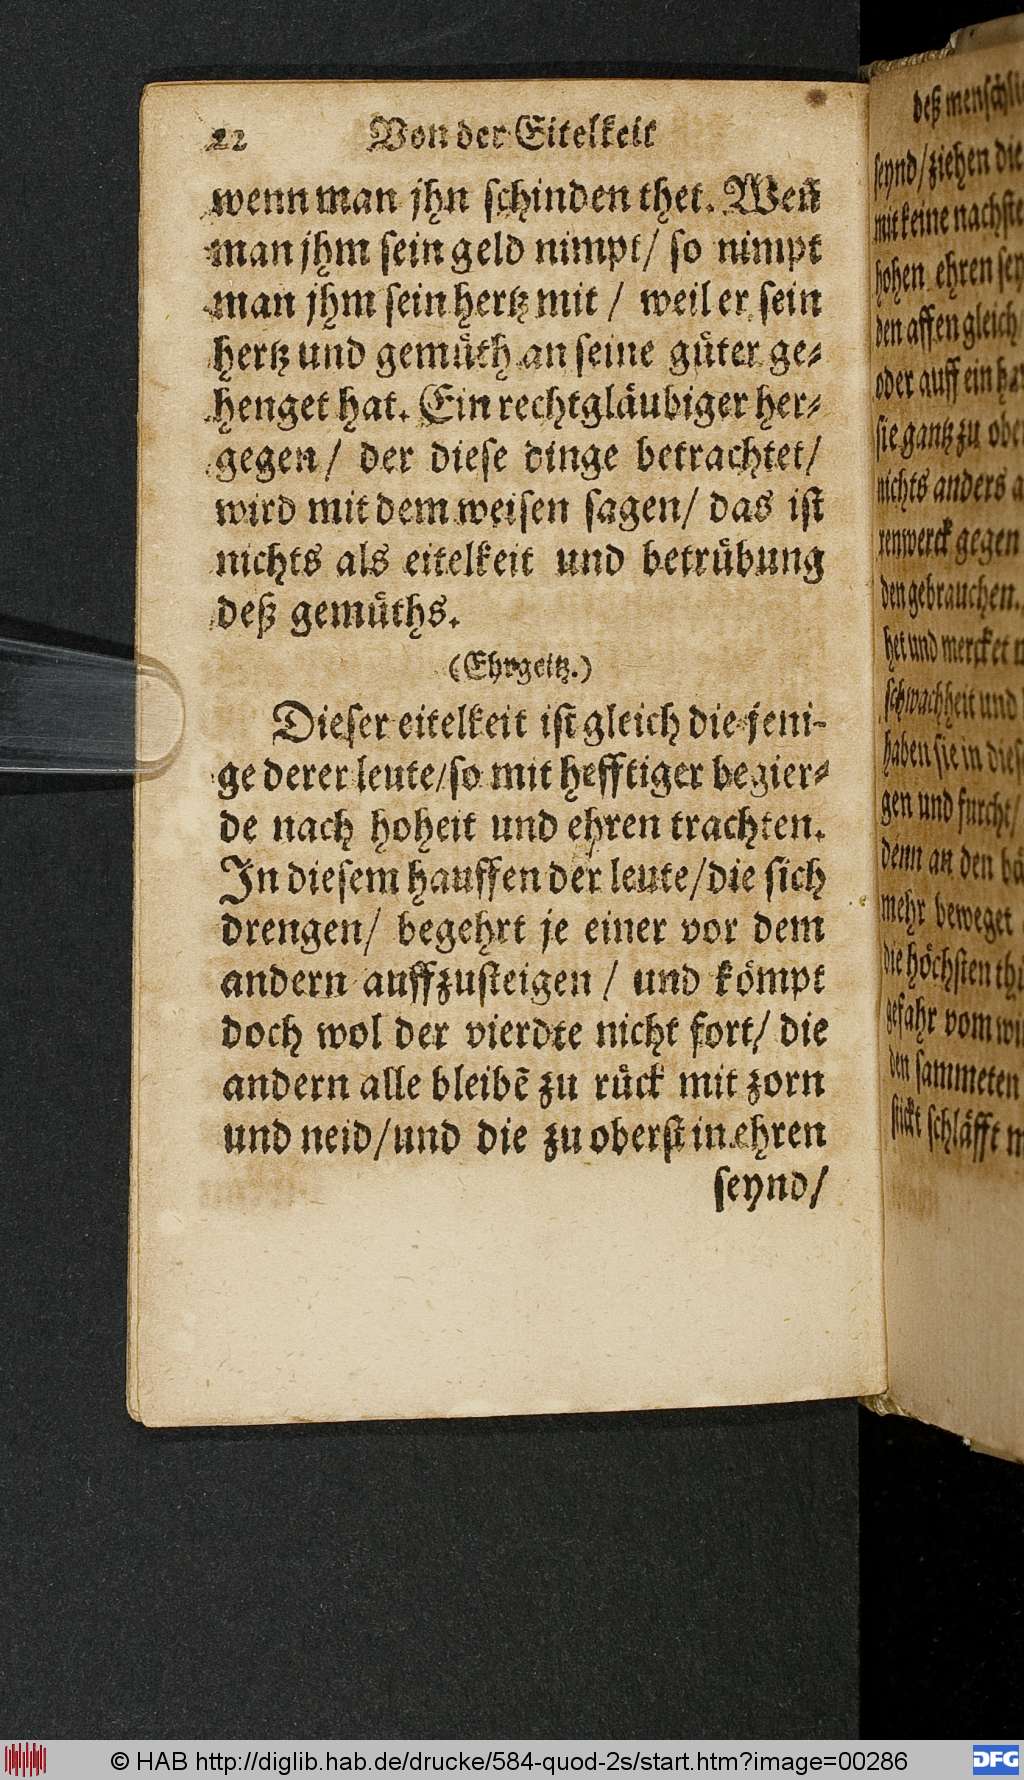 22 Von der Eitelkeit
wenn man jhn schinden thet. Weñ
man jhm sein geld nimpt/ so nimpt
man jhm sein hertz mit / weil er sein
hertz und gemüth an seine güter ge-
henget hat. Ein rechtgläubiger her-
gegen/ der diese dinge betrachtet/
wird mit dem weisen sagen/ das ist
nichts als eitelkeit und betrübung
deß gemüths.
(Ehrgeitz.)
Dieser eitelkeit ist gleich die jeni-
ge derer leute/so mit hefftiger begier-
de nach hoheit und ehren trachten.
In diesem hauffen der leute/die sich
drengen/ begehrt je einer vor dem
andern auffzusteigen / und kömpt
doch wol der vierdte nicht fort/ die
andern alle bleibẽ zu rück mit zorn
und neid/und die zu oberst in ehren
seynd/
deß
seynd/ziehen die
mit keine
hohen ehren
den affen gleich
oder auff ein
sie gantz zu
nichts anders
gegen
den gebrauchen.
het und mercket
schwachheit und
haben sie in
gen und furcht/
denn an den
mehr beweget
die höchsten
gefahr vom
den sammeten
stickt schläfft
© HAB http://diglib.hab.de/drucke/584-quod-2s/start.htm?image=00286
DFG